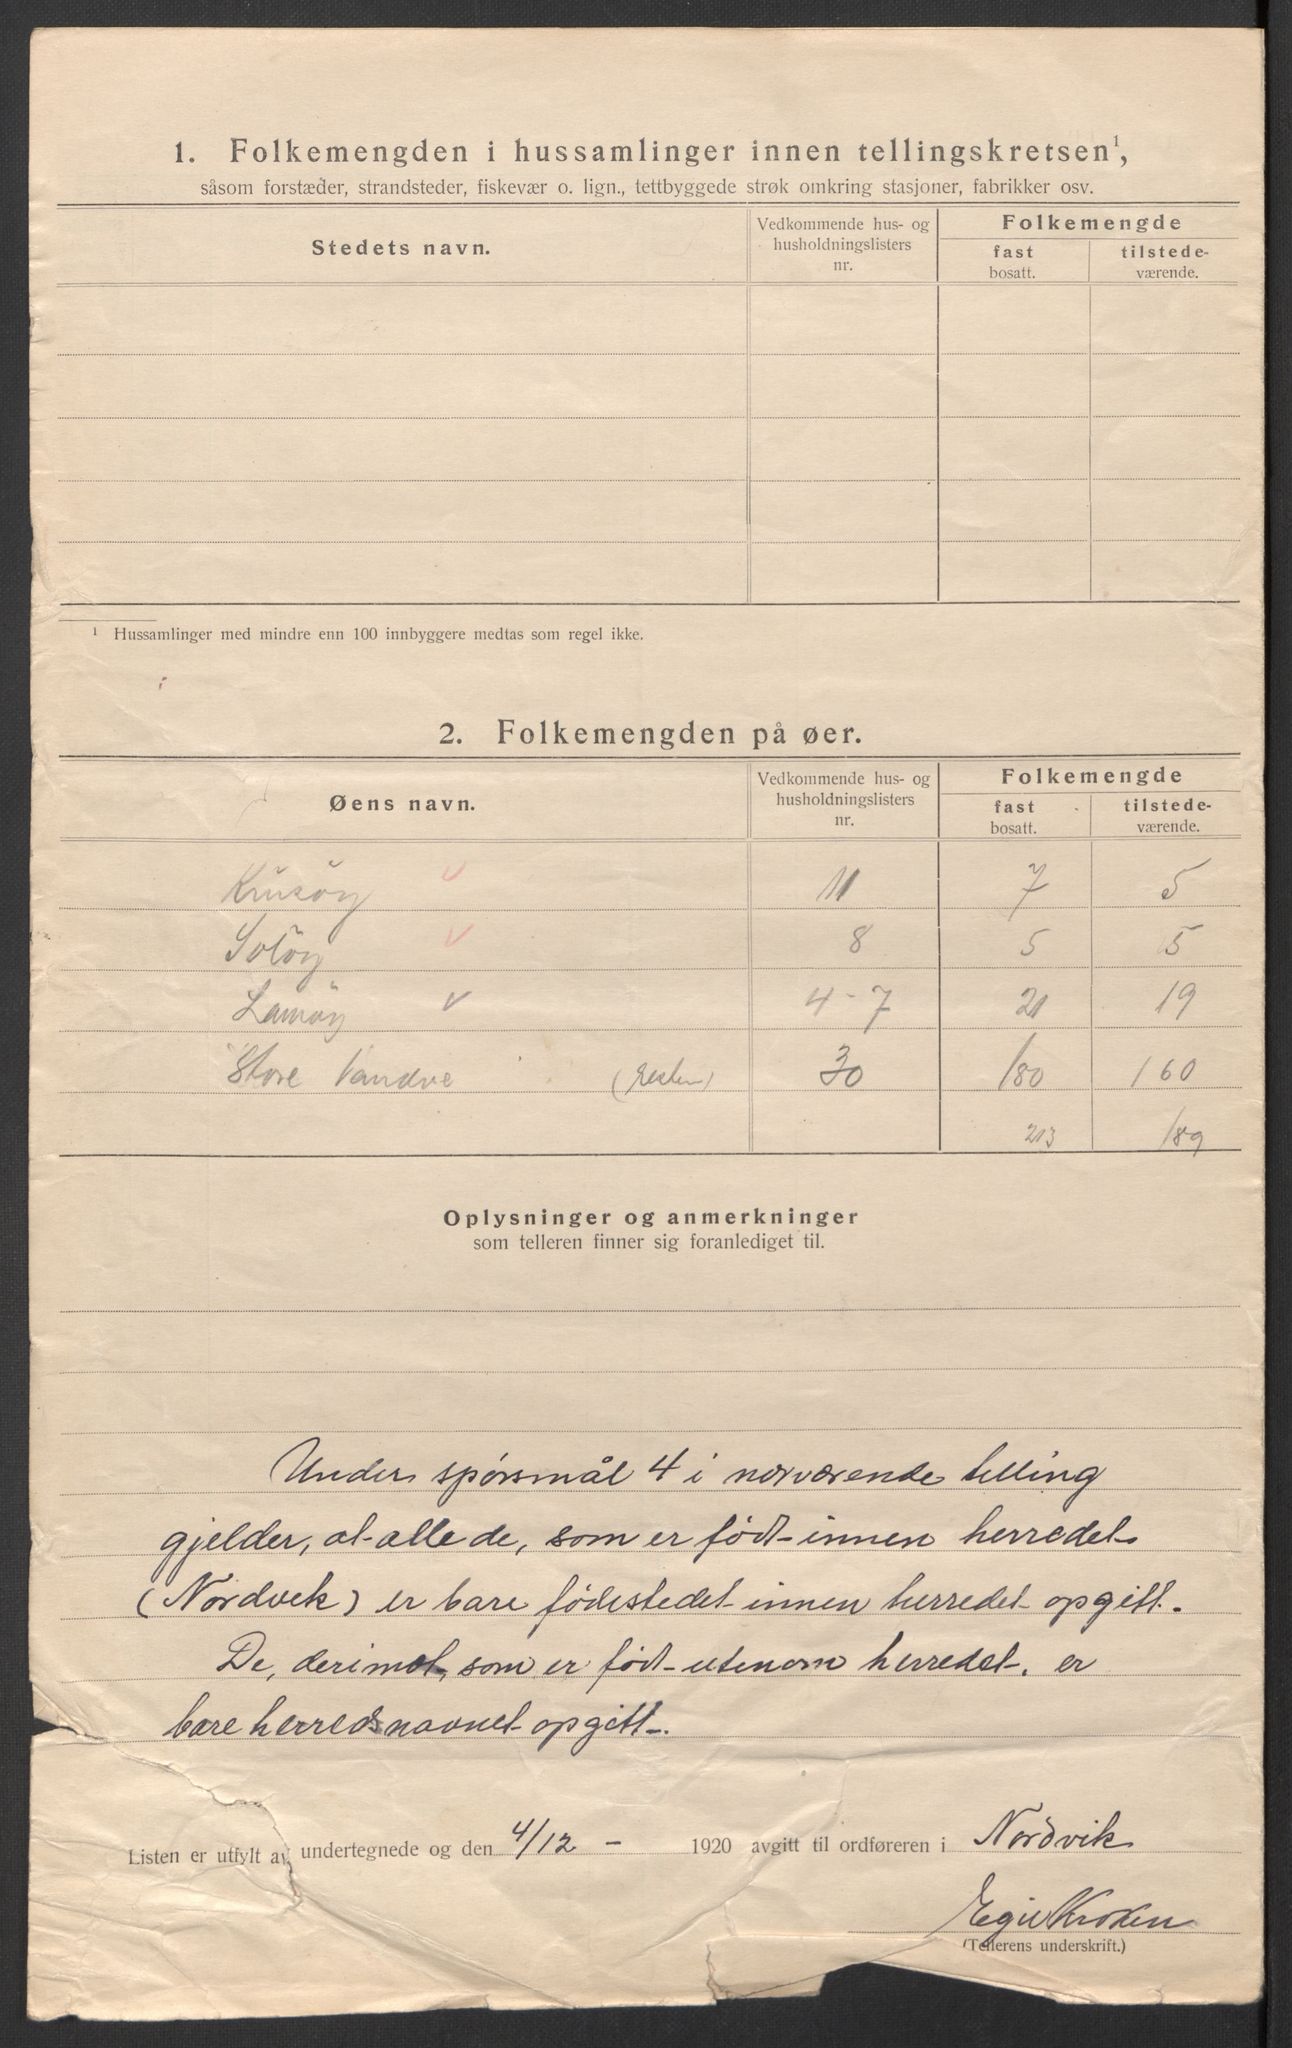 1. Folkemengden i hussamlinger innen tellingskretsen¹,
såsom forstæder, strandsteder, fiskevær o. lign., tettbyggede strøk omkring stasjoner, fabrikker osv.
Stedets navn.
Vedkommende hus- og
husholdningslisters
nr.
Folkemengde
fast
bosatt.
tilstede-
værende.
¹ Hussamlinger med mindre enn 100 innbyggere medtas som regel ikke.
2. Folkemengden på øer.
Øens navn.
Vedkommende hus- og
husholdningslisters
nr.
Folkemengde
fast
bosatt.
tilstede-
værende.
11 7 5
Soløy v 8 5 5
Lamøy v 4-7 21 19
Store Vandve 30 180 160
213 189
Oplysninger og anmerkninger
som telleren finner sig foranlediget til.
Under spørsmål 4 i nærværende telling
gjelder, at alle de, som er født innen herredet
(Nordvik) er bare fødestedet innen herredet opgitt.
De, derimot, som er født utenom herredet, er
bare herredsnavnet opgitt.
Listen er utfylt av undertegnede og den 4/12 - 1920 avgitt til ordføreren i Nordvik
Egil Kroken
(Tellerens underskrift.)